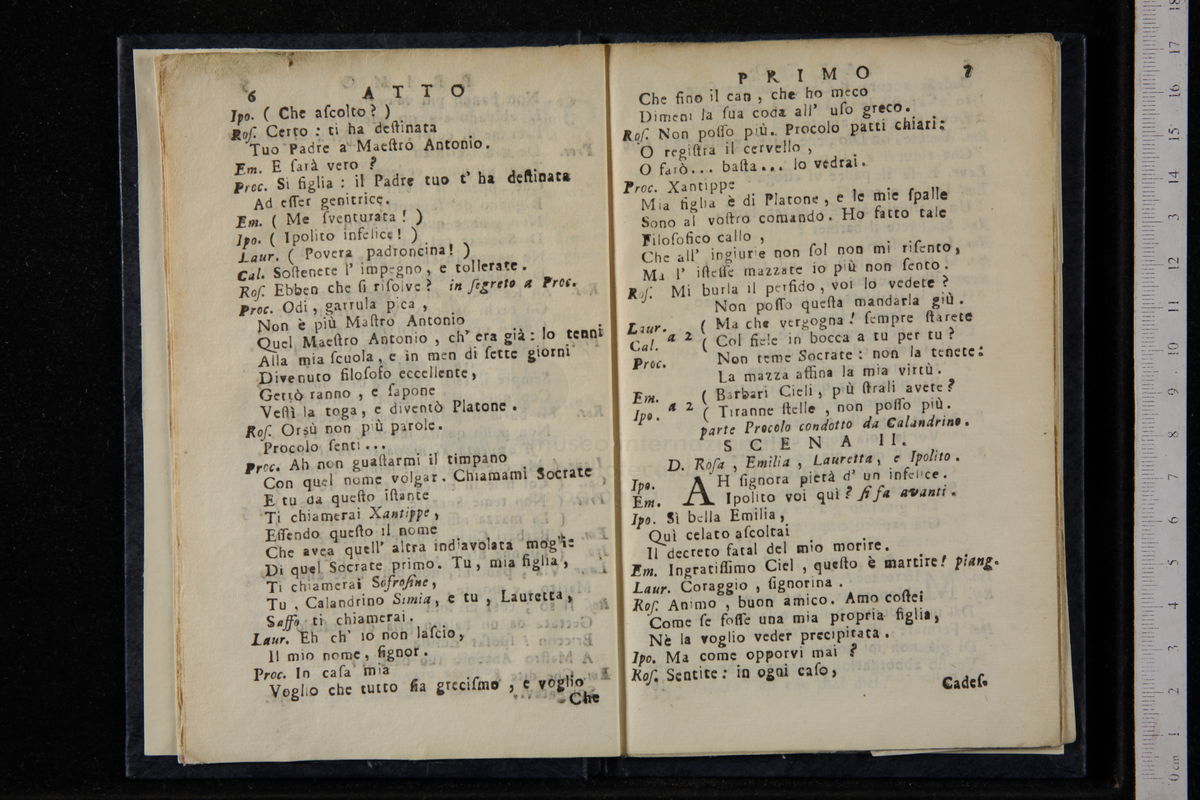 6 ATTO
Ipo. ( Che aſcolto? )
Roſ. Certo : ti ha deſtinata
Tuo Padre a Maeſtro Antonio.
Em. E ſarà vero ?
Proc. Sì figlia : il Padre tuo t' ha deſtinata
Ad eſſer genitrice.
Em. ( Me ſventurata ! )
Ipo. ( Ipolito infelice ! )
Laur. ( Povera padroncina ! )
Cal. Soſtenete l' impegno, e tollerate.
Roſ. Ebben che ſi riſolve? in ſegreto a Proc.
Proc. Odi, garrula pica,
Non è più Maſtro Antonio
Quel Maeſtro Antonio, ch' era già : lo tenni
Alla mia ſcuola, e in men di ſette giorni
Divenuto filoſofo eccellente,
Gettò ranno, e ſapone
Veſtì la toga, e diventò Platone.
Roſ. Orsù non più parole.
Procolo ſenti...
Proc. Ah non guaſtarmi il timpano
Con quel nome volgar. Chiamami Socrate
E tu da queſto iſtante
Ti chiamerai Xantippe,
Eſſendo queſto il nome
Che avea quell' altra indiavolata mog'ie
Di quel Socrate primo. Tu, mia figlia,
Ti chiamerai Sofroſine,
Tu, Calandrino Simia, e tu, Lauretta,
Saffo ti chiamerai.
Laur. Eh ch' io non laſcio,
Il mio nome, ſignor.
Proc. In caſa mia
Voglio che tutto ſia greciſmo, e voglio
Che
PRIMO 7
Che fino il can, che ho meco
Dimeni la ſua coda all' uſo greco.
Roſ. Non poſſo più. Procolo patti chiari:
O regiſtra il cervello,
O farò... baſta... lo vedrai.
Proc. Xantippe
Mia figlia è di Platone, e le mie ſpalle
Sono al voſtro comando. Ho fatto tale
Filoſofico callo,
Che all' ingiurie non ſol non mi riſento,
Ma l' iſteſſe mazzate io più non ſento.
Roſ. Mi burla il perfido, voi lo vedete ?
Non poſſo queſta mandarla giù.
Laur. a 2 ( Ma che vergogna! ſempre ſtarete
Cal. ( Col fiele in bocca a tu per tu ?
Proc. Non teme Socrate : non la tenete:
La mazza affina la mia virtù.
Em. a 2 ( Barbari Cieli, più ſtrali avete ?
Ipo. ( Tiranne ſtelle, non poſſo più.
parte Procolo condotto da Calandrino.
SCENA II.
D. Roſa, Emilia, Lauretta, e Ipolito.
Ipo. AH ſignora pietà d' un infelice.
Em. Ipolito voi quì ? ſi fa avanti.
Ipo. Sì bella Emilia,
Quì celato aſcoltai
Il decreto fatal del mio morire.
Em. Ingratiſſimo Ciel, queſto è martire! piang.
Laur. Coraggio, ſignorina.
Roſ. Animo, buon amico. Amo coſtei
Come ſe foſſe una mia propria figlia,
Nè la voglio veder precipitata.
Ipo. Ma come opporvi mai ?
Roſ. Sentite : in ogni caſo,
Cadeſ-